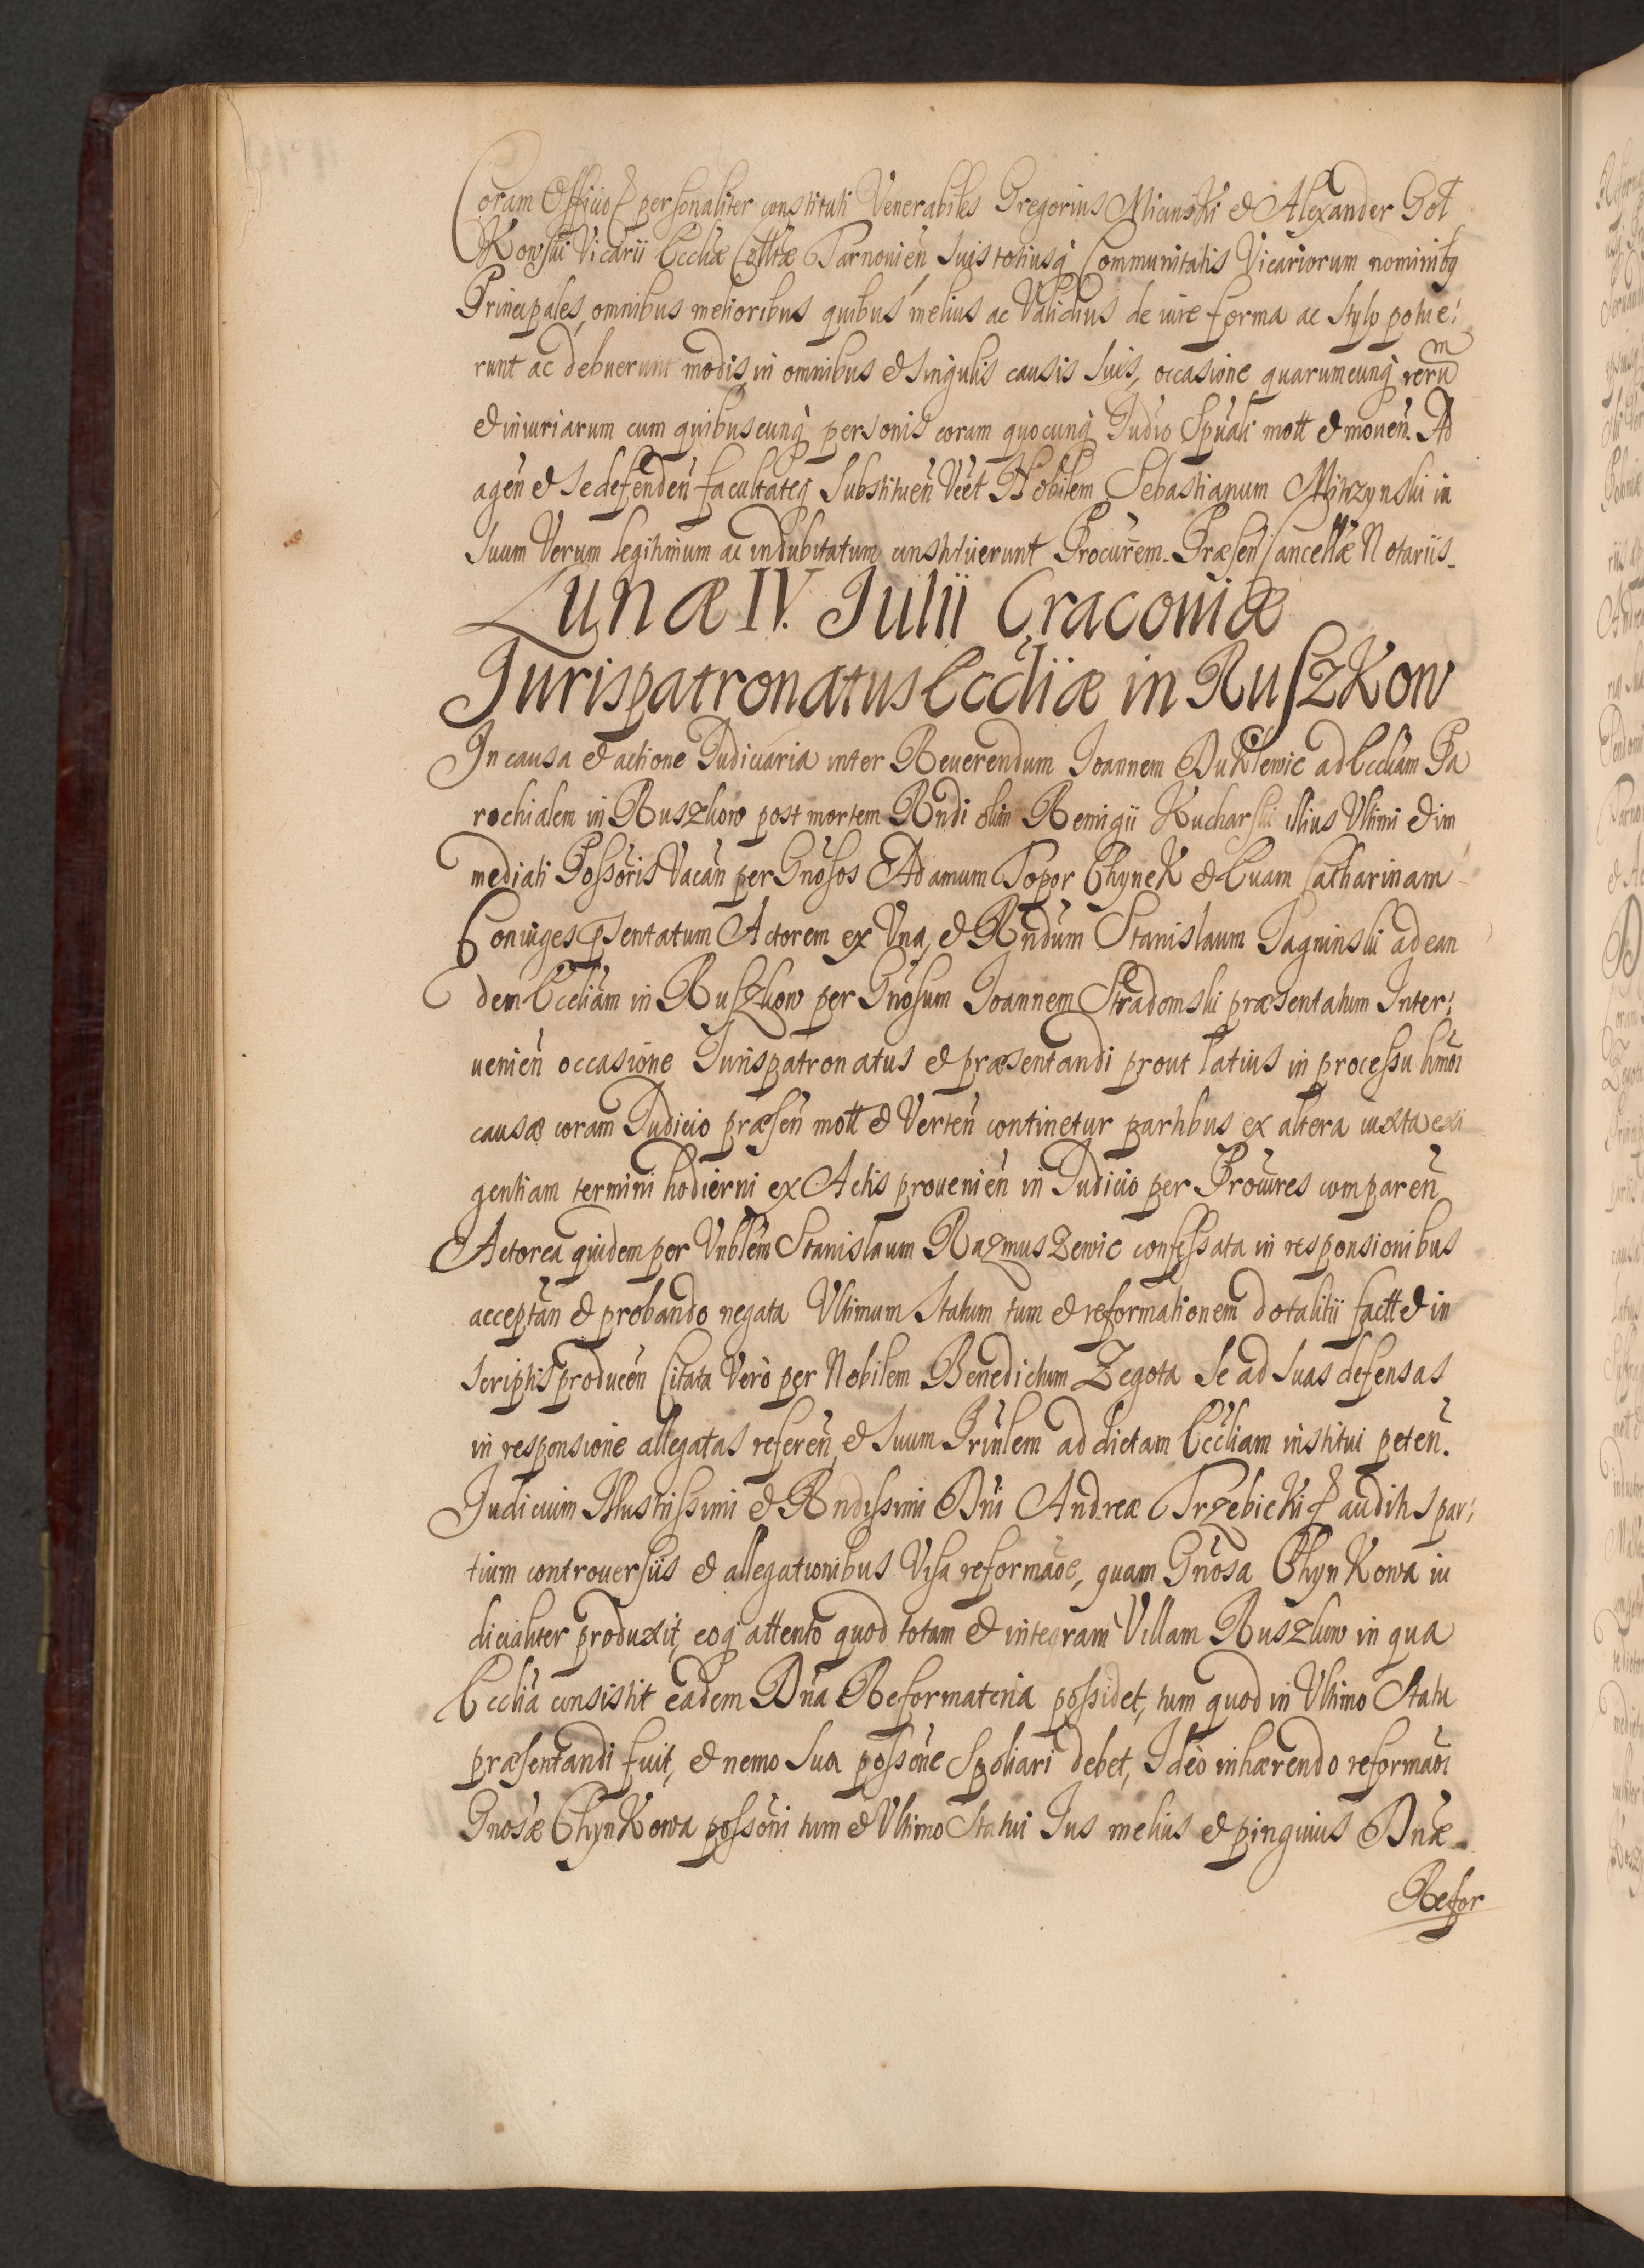 Coram Officio personaliter constituti Venerabiles Gregorius Micinski et Alexander Got
Kowski Vicarii Eccliæ Collttæ Tarnovien̄ suis totiusq̃ Communitatis Vicariorum nominibq
Principales, omnibus melioribus quibus melius ac Validius de iure forma ac stylo potue:
runt ac debuerunt modis, in omnibus et singulis causis suis, occasione quarumcunq̃ rerum
et iniuriarum cum quibuscunq̃ personis coram quocunq̃ Judio Spuali mott et mouen̄. Ad
agen̄ et se defenden̄ facultateq̃ substituen̄ Vt Nobilem Sebastianum Mirzynski in
suum Verum legitimum ac indubitatum constituerunt Procurem. Præsen̄ Cancellæ Notariis.
Lunæ IV. Julii Cracoviæ
Jurispatronatus Eccliæ in RuszKow
In causa et actione Judiciaria inter Reuerendum Joannem DuKlewic ad Eccliam Pa
rochialem in Ruszkow post mortem Rndi olim Remigii Kucharski illius Vltimi et im
mediati Possoris Vacan̄ per Gnosos Adamum Topor ChyneK et Euam Catharinam
Coniuges p̄sentatum Actorem ex Vna, et Rndum Stanislaum Jagninski ad ean
dem Eccliam in Ruszkow per Gnosum Joannem Stradomski præsentatum Inter:
uenien̄ occasione Jurispatronatus et præsentandi prout latius in processu hmōi
causæ coram Judicio præsen̄ mott et Verten̄ continetur partibus ex altera iuxta exi
gentiam termini hodierni ex Actis prouenien̄ in Judicio per Procures comparen̄
Actorea quidem per Vnblem Stanislaum RazmusZewic confessata in responsionibus
acceptan̄ et probando negata Vltimum statum tum et reformationem dotalitii factt et in
scriptis producen̄ Citata Verò per Nobilem Benedictum Zegota se ad suas defensas
in responsione allegatas referen̄, et suum Prinlem ad dictam Eccliam institui peten̄.
Judicium Illustrissimi et Rndissimi Dni Andreæ TrzebicKi auditis par:
tium controuersiis et allegationibus Visa reformaōe, quam Gnosa ChynKowa iu
dicialiter produxit, eoq̃ attento quod totam et integram Villam Ruszkow in qua
Ecclia consistit eadem Dna Reformateria possidet, tum quod in Vltimo Statu
præsentandi fuit, et nemo sua possone Spoliari debet, Ideo inhærendo reformaōi
Gnosæ ChynKowa possōni tum et Vltimo Statui Jus melius et pinguius Dnæ
Refor